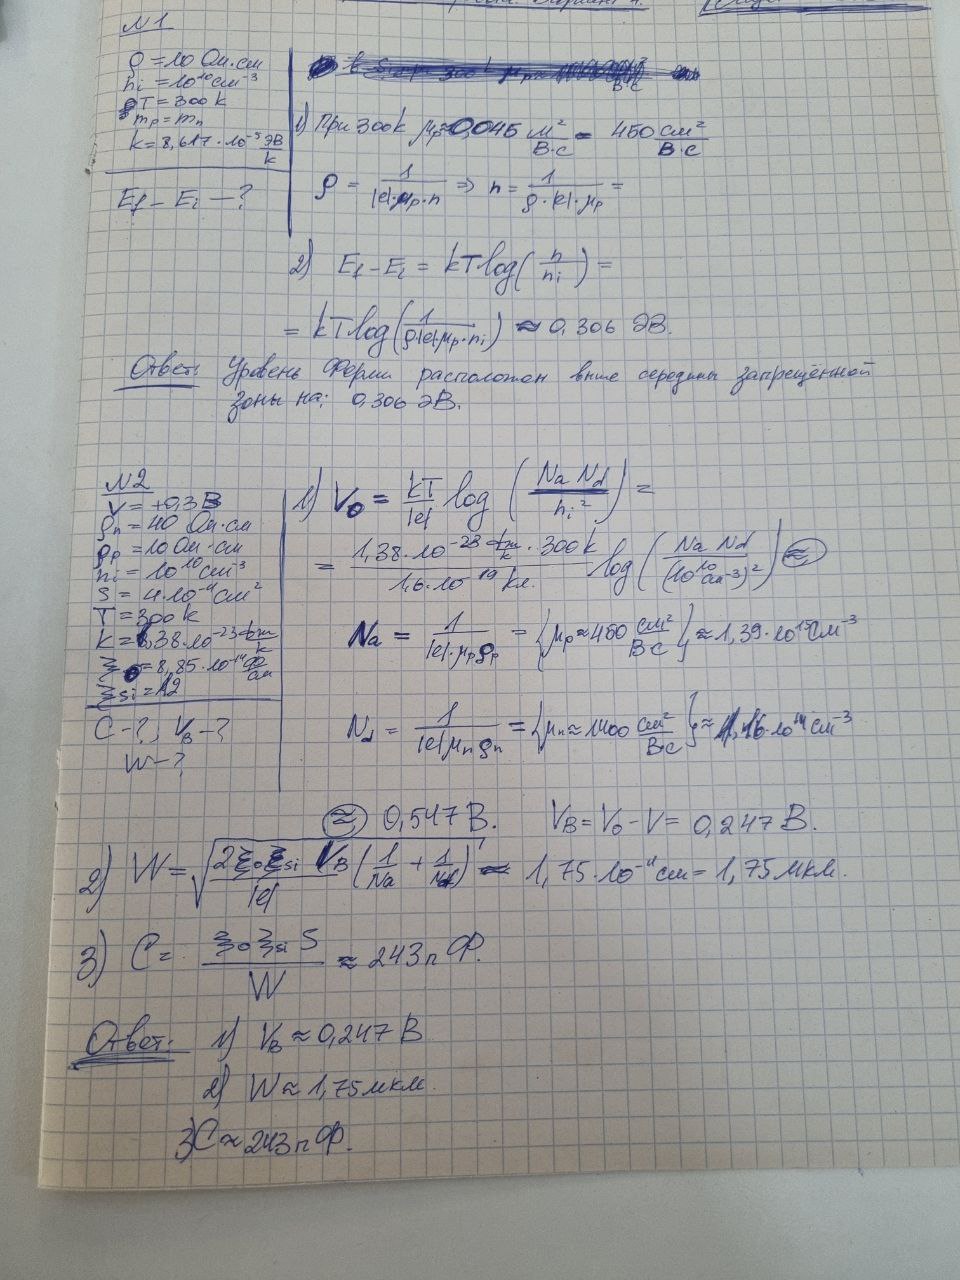 Вариант 4.
N1
ρ = 10 Ом·см
nᵢ = 10¹⁰ см⁻³
T = 300 k
mₚ = mₙ
k = 8,617·10⁻⁵ эВ/k
E_f − Eᵢ − ?
1) При 300k μₚ ≈ 0,045 м²/В·с = 450 см²/В·с
ρ = 1/(|e|·μₚ·n) ⇒ n = 1/(ρ·|e|·μₚ) =
2) E_f − Eᵢ = kT log(n/nᵢ) =
= kT log(1/(ρ|e|μₚ·nᵢ)) ≈ 0,306 эВ.
Ответ: Уровень Ферми расположен выше середины запрещённой
зоны на: 0,306 эВ.
N2
V = +0,3 В
ρₙ = 40 Ом·см
ρₚ = 10 Ом·см
nᵢ = 10¹⁰ см⁻³
T = 300 k
ξ_si = 12
C − ?, V_B − ?
W − ?
1) V₀ = kT/|e| log(Na Nd/nᵢ²) =
= (1,38·10⁻²³ Дж/k · 300k)/(1,6·10⁻¹⁹ Кл.) log(Na Nd/(10¹⁰ см⁻³)²) ≈
Na = 1/(|e|·μₚρₚ) = {μₚ ≈ 450 см²/Вс} ≈ 1,39·10¹⁵ см⁻³
Nd = 1/(|e|μₙρₙ) = {μₙ ≈ 1400 см²/Вс} ≈ 1,16·10¹⁴ см⁻³
≈ 0,547 В. V_B = V₀ − V = 0,247 В.
2) W = √(2ξ₀ξ_si V_B/|e| (1/Na + 1/Nd)) ≈ 1,75·10⁻⁴ см = 1,75 мкм.
3) C = ξ₀ξ_si S/W ≈ 243 пФ.
Ответ: 1) V_B ≈ 0,247 В
2) W ≈ 1,75 мкм.
3) C ≈ 243 пФ.